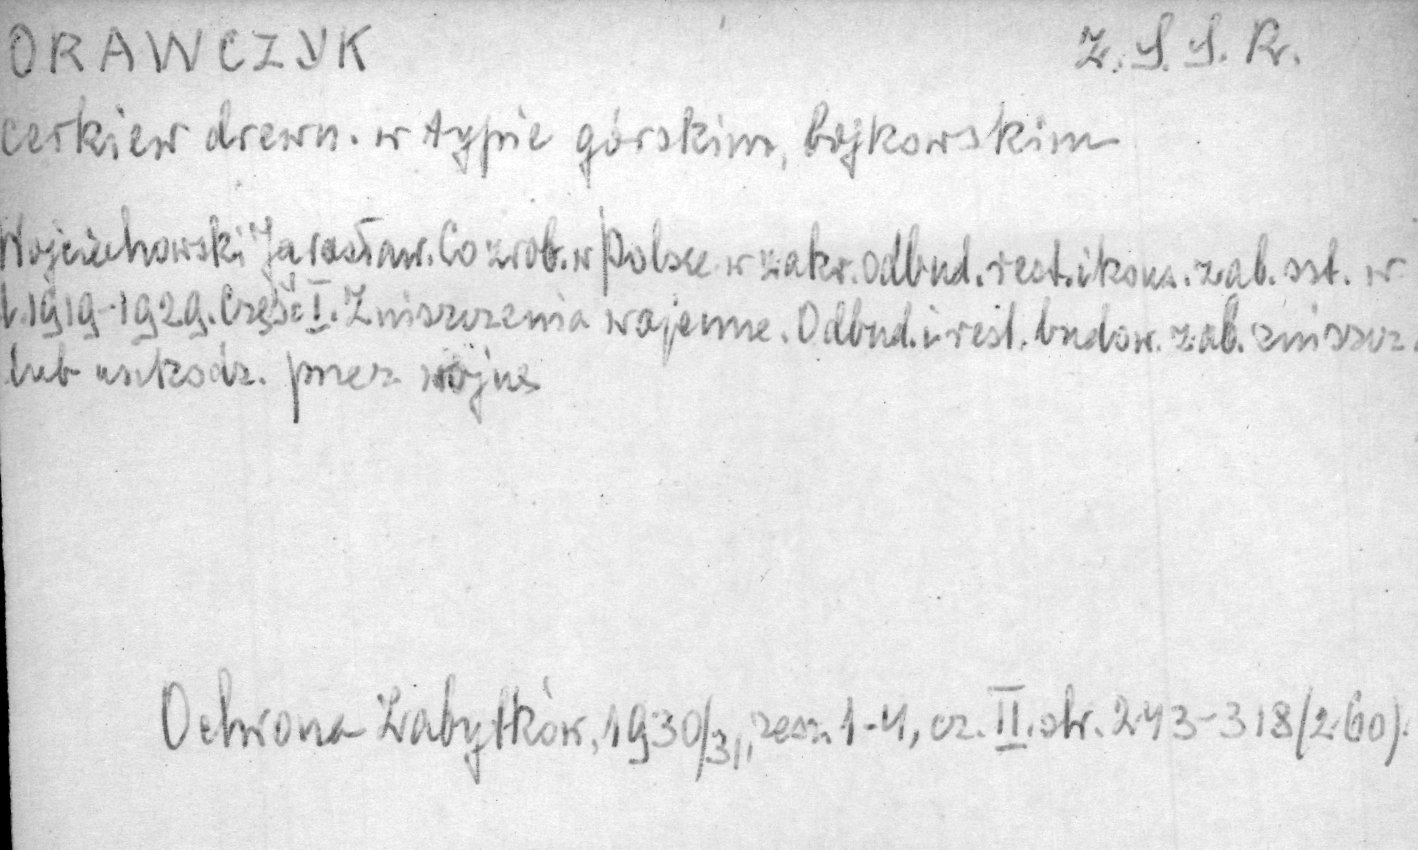 ORAWCZYK Z.S.S.R.
cerkiew drewn. w typie górskim, bojkowskim
Wojciechowski Jarosław. Co zrob. w Polsce w zakr. odbud. rest. i kons. zab. szt. w
l. 1919-1929. Część I. Zniszczenia wojenne. Odbud. i rest. budow. zab. zniszcz.
lub uszkodz. przez wojnę
Ochrona Zabytków, 1930/31, zesz. 1-4, cz. II. str. 243-318 (260).